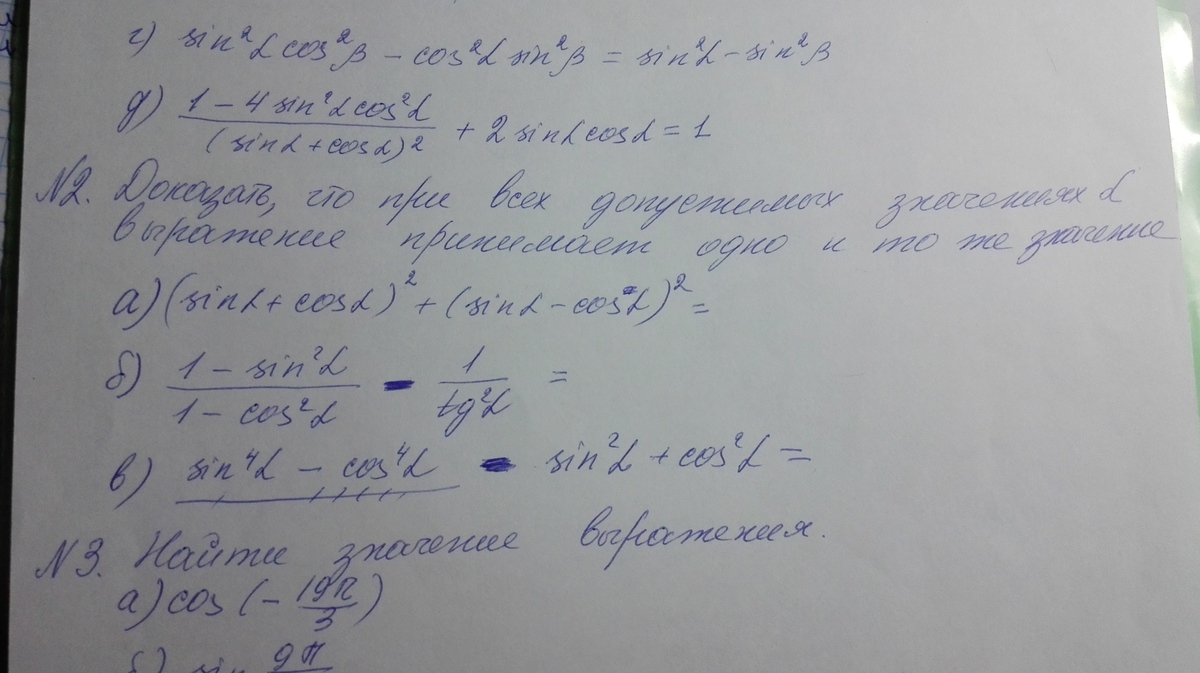 г) sin²α cos²β - cos²α sin²β = sin²α - sin²β
д) (1 - 4 sin²α cos²α) / (sinα + cosα)² + 2 sinα cosα = 1
N2. Доказать, что при всех допустимых значениях α
выражение принимает одно и то же значение
а) (sinα + cosα)² + (sinα - cosα)² =
б) (1 - sin²α) / (1 - cos²α) - 1 / tg²α =
в) sin⁴α - cos⁴α - sin²α + cos²α =
N3. Найти значение выражения.
а) cos (- 19π/3)
б) sin 9π